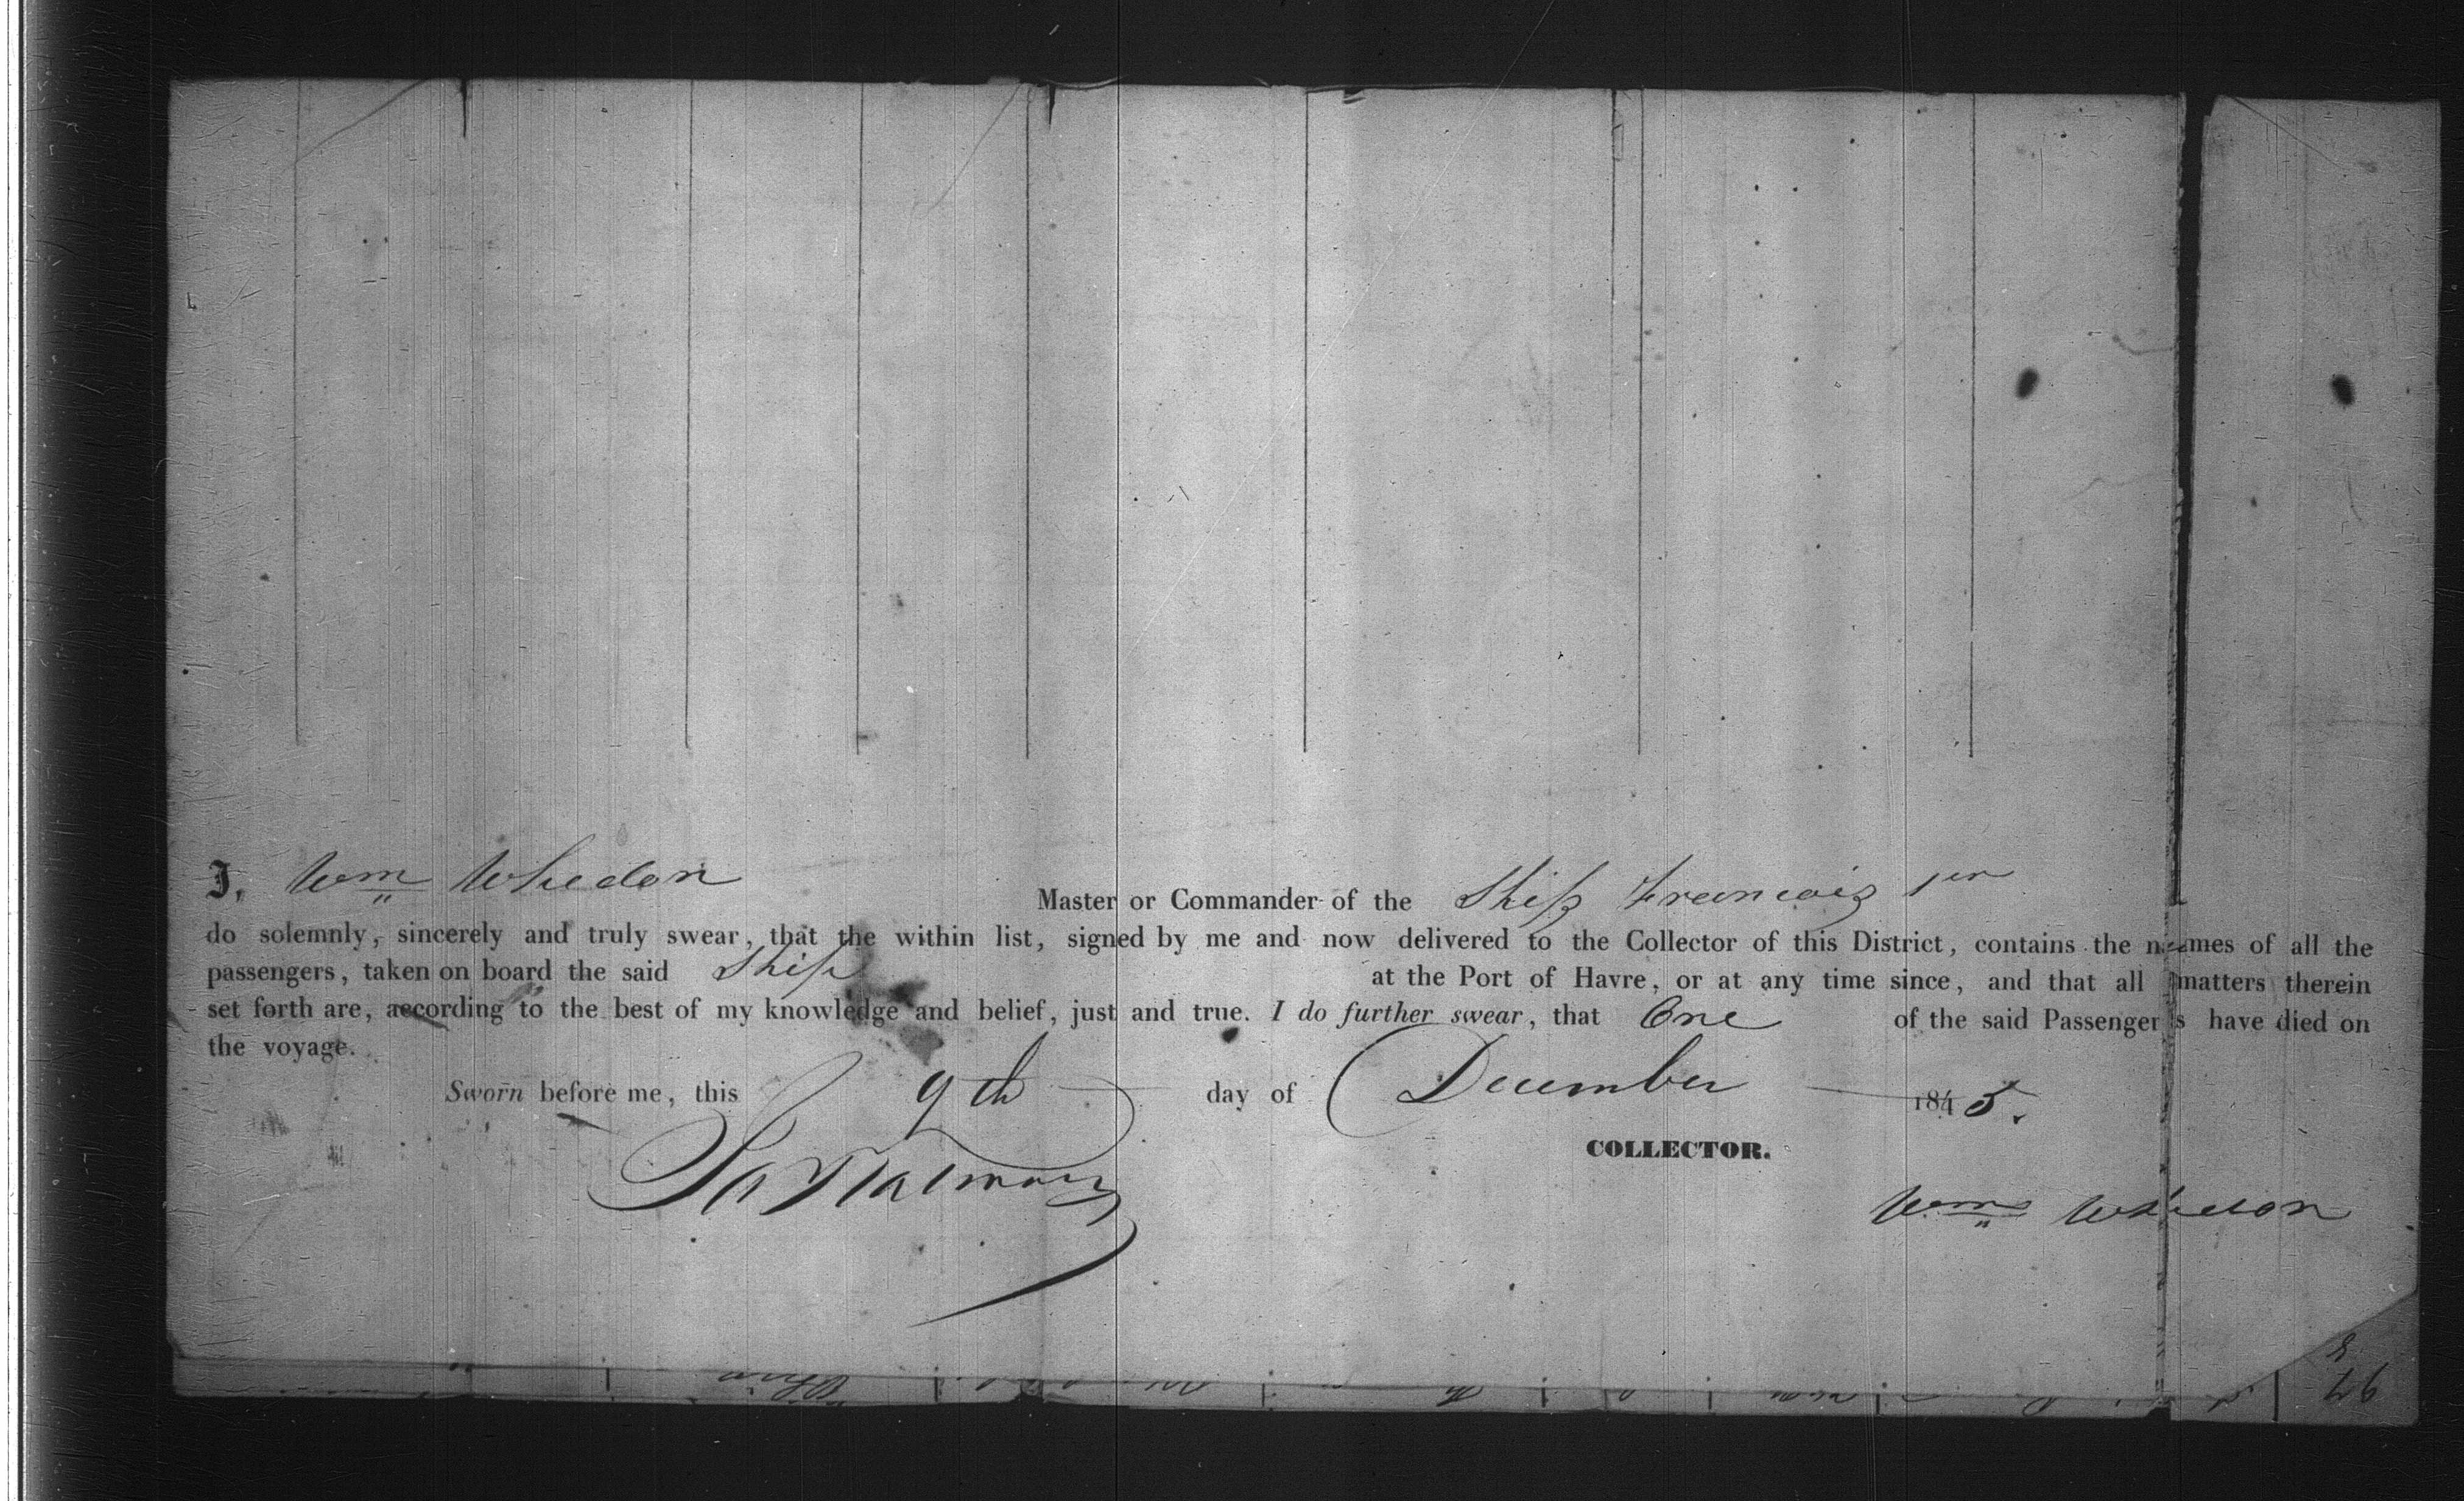 I, Wm Whedon Master or Commander of the Ship Francois 1er
do solemnly, sincerely and truly swear, that the within list, signed by me and now delivered to the Collector of this District, contains the names of all the
passengers, taken on board the said Ship at the Port of Havre, or at any time since, and that all matters therein
set forth are, according to the best of my knowledge and belief, just and true. I do further swear, that One of the said Passengers have died on
the voyage.
Sworn before me, this 9th day of December 1845.
COLLECTOR.
Wm Whedon